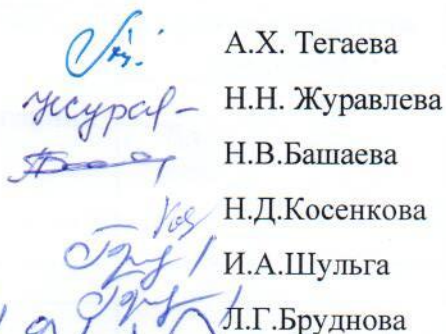 А.Х. Тегаева
Н.Н. Журавлева
Н.В.Башаева
Н.Д.Косенкова
И.А.Шульга
Л.Г.Бруднова